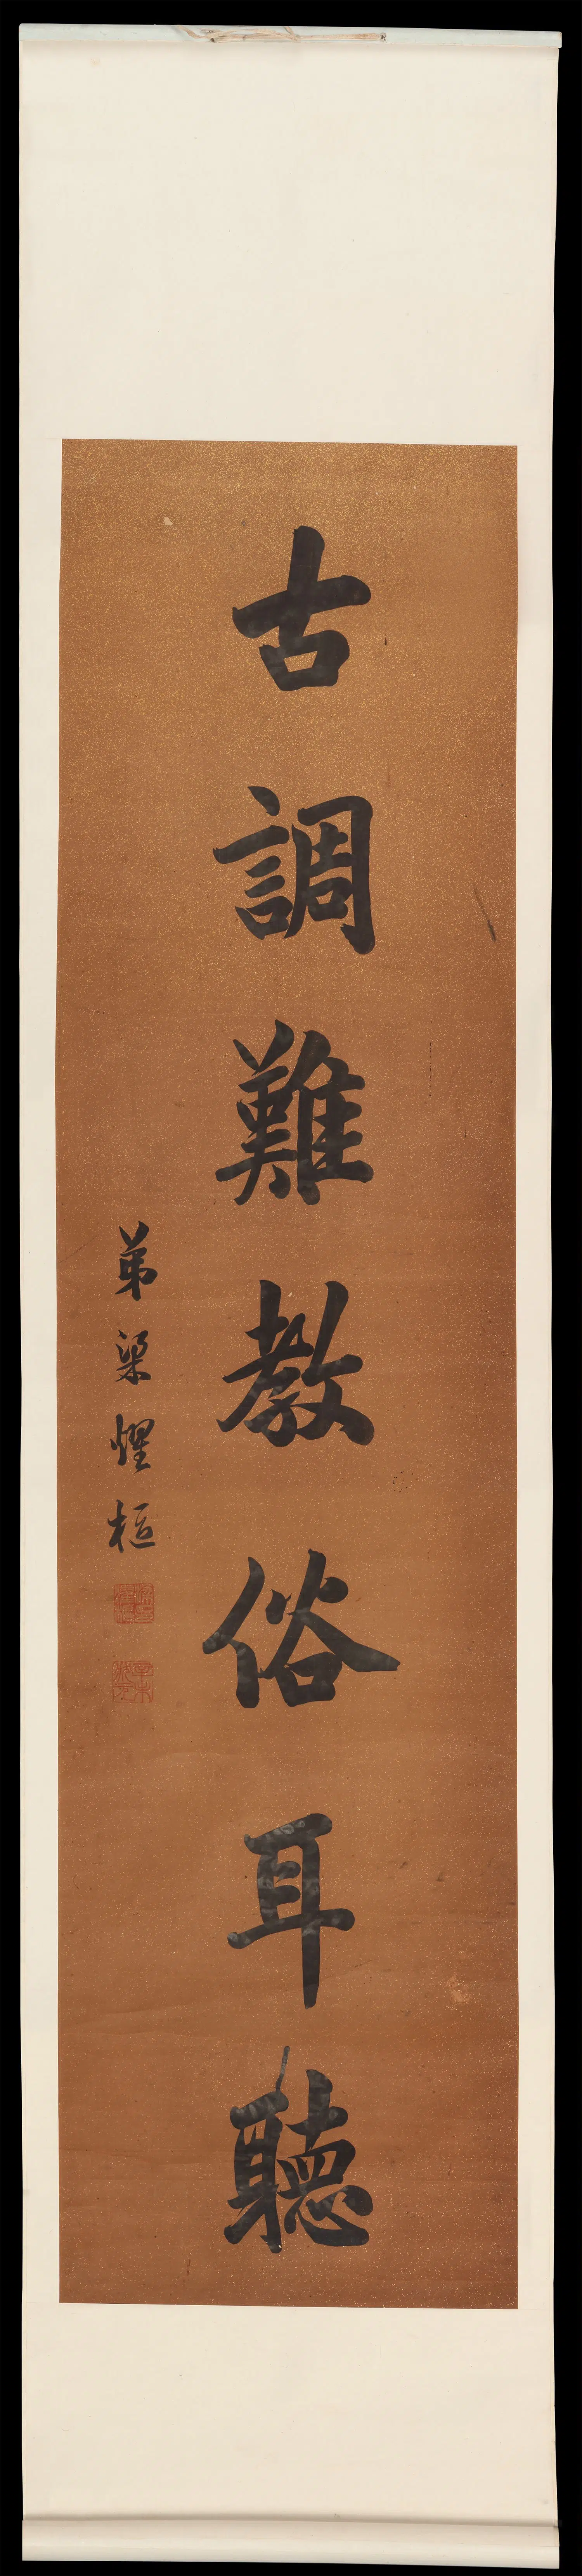 古調難教俗耳聽
弟梁燿樞